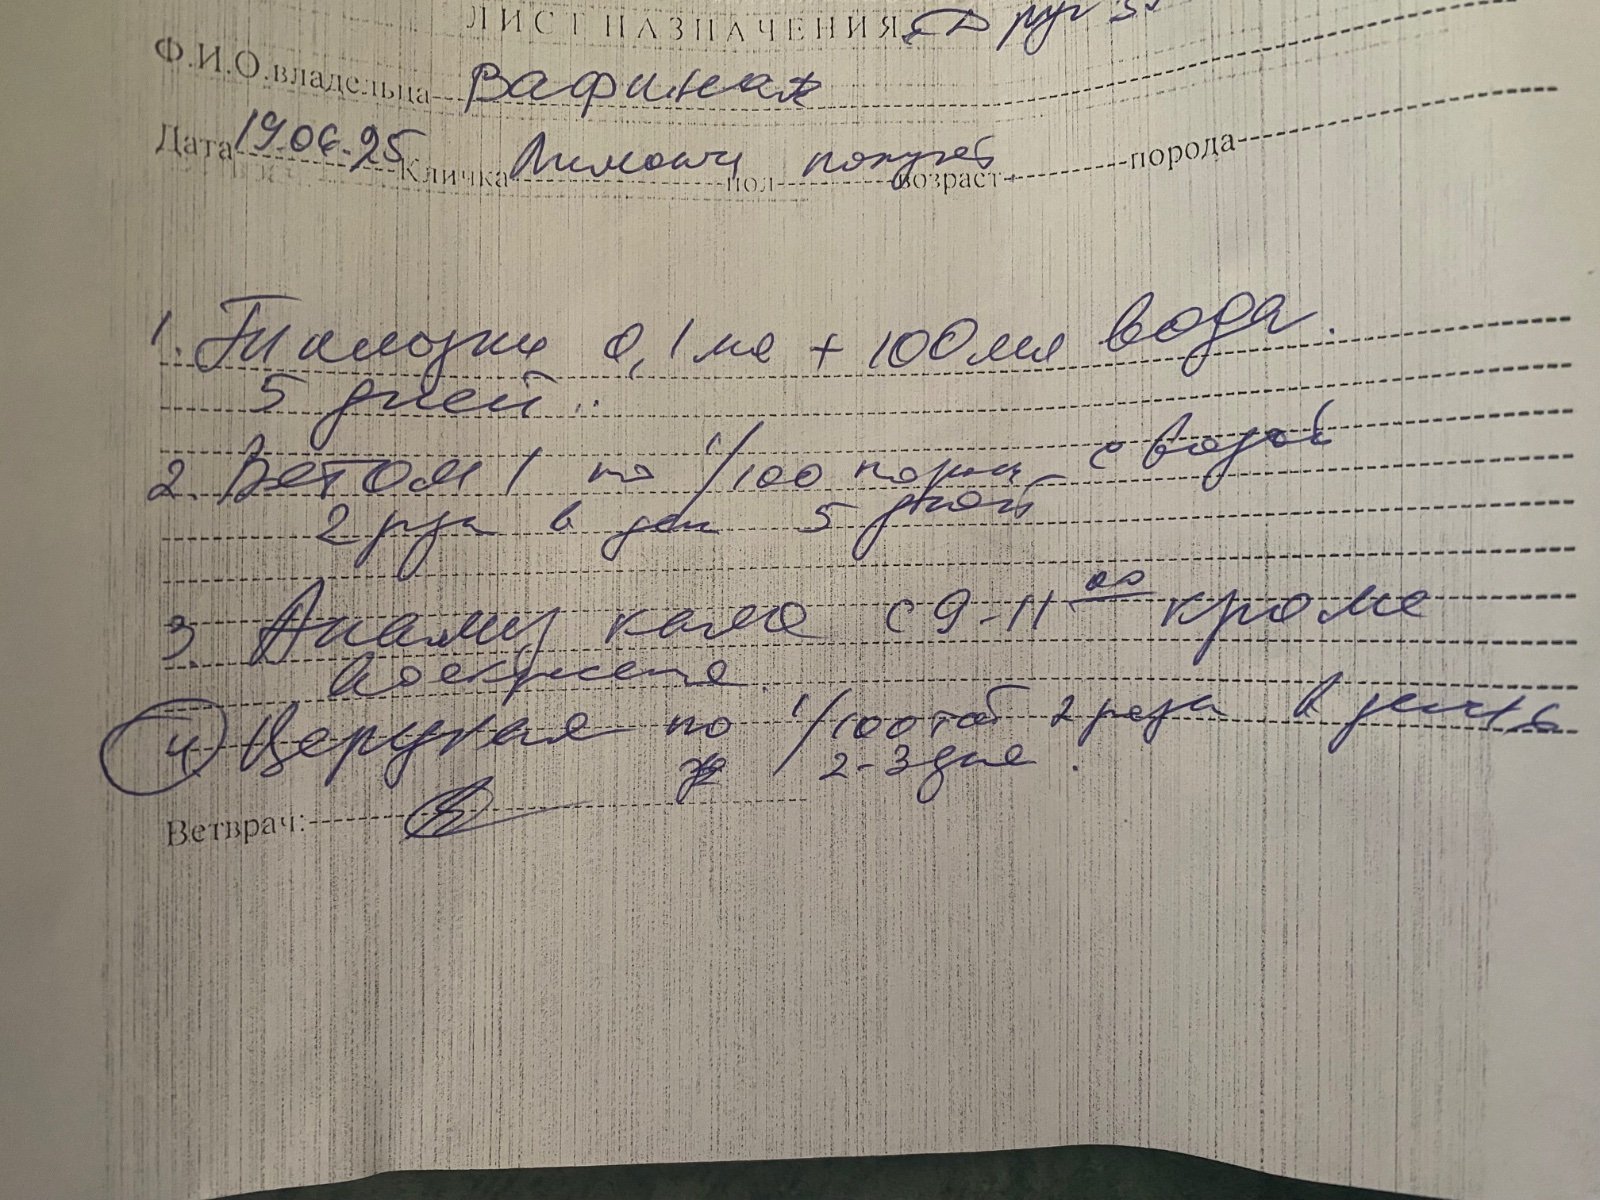 ЛИСТ НАЗНАЧЕНИЯ Друг
Ф.И.О.владельца Вафина
Дата 19.06.25 Кличка Лимончи пол попугай возраст порода
1. Тиалозин 0,1 мл + 100 мл вода.
5 дней
2. Ветом 1 по 1/100 порц с водой
2 раза в день 5 дней
3. Анализ кала с 9-11 00 кроме
воскресенья
4. Церукал по 1/100 таб 2 раза в день
2-3 дня.
Ветврач: